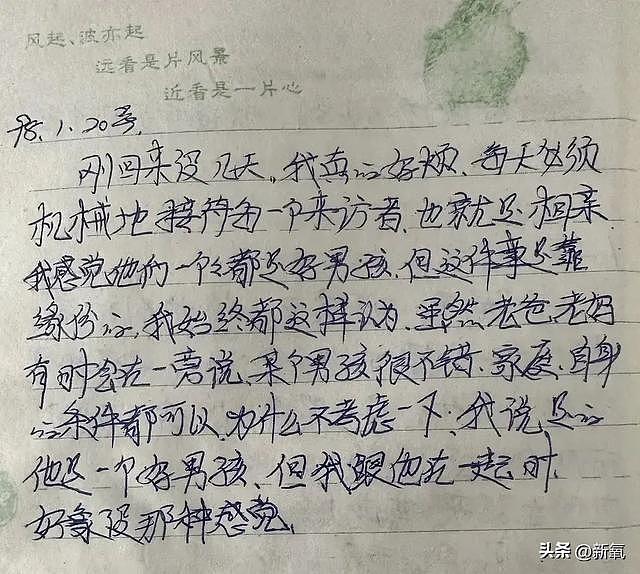 风起、波亦起
远看是片风景
近看是一片心
98.1.20号.
刚回来没几天,我真的好烦、每天必须
机械地接待每一个来访者.也就是相亲
我感觉他们一个个都是好男孩.但这件事是靠
缘份的,我始终都这样认为.虽然老爸、老妈
有时会在一旁说、某个男孩很不错、家庭、自身
的条件都可以.为什么不考虑一下.我说是的
他是一个好男孩、但我跟他在一起时、
好象没那种感觉.
头条 @新氧